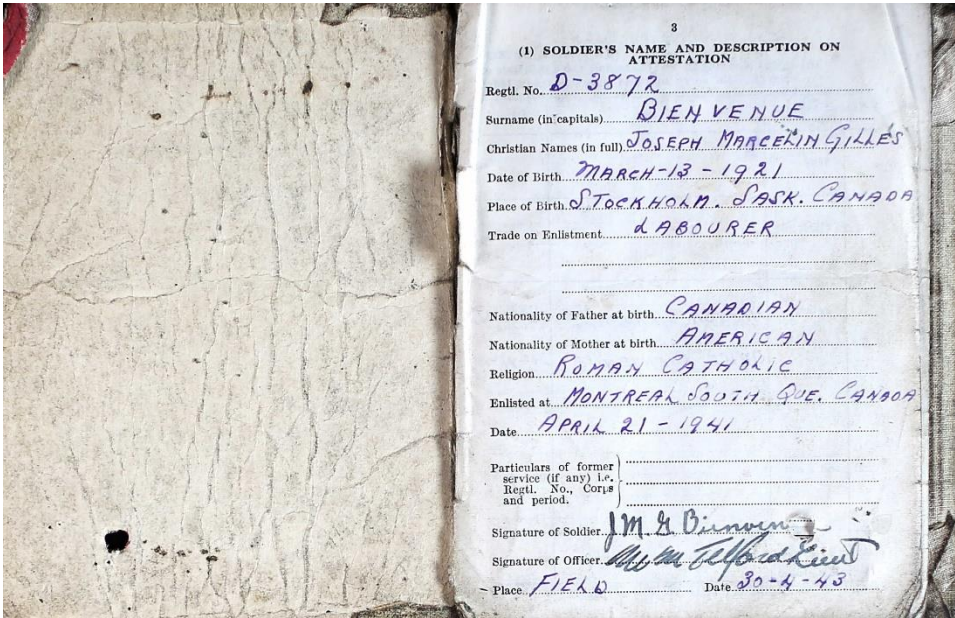 3
(1) SOLDIER'S NAME AND DESCRIPTION ON
ATTESTATION
Regtl. No. D-3872
Surname (in capitals) BIENVENUE
Christian Names (in full) JOSEPH MARCELIN GILLES
Date of Birth MARCH-13-1921
Place of Birth STOCKHOLM. SASK. CANADA
Trade on Enlistment LABOURER
Nationality of Father at birth CANADIAN
Nationality of Mother at birth AMERICAN
Religion ROMAN CATHOLIC
Enlisted at MONTREAL SOUTH QUE. CANADA
Date APRIL 21-1941
Particulars of former
service (if any) i.e.
Regtl. No., Corps
and period.
Signature of Soldier J M. G Bienvenue
Signature of Officer Telford Lieut
Place FIELD Date 30-4-43